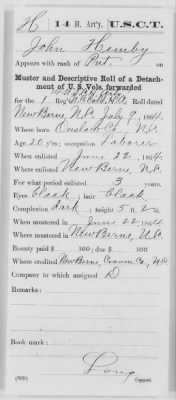 H | 14 H. Art'y. | U.S.C.T.
John Himby
Appears with rank of Pvt. on
Muster and Descriptive Roll of a Detach-
ment of U. S. Vols. forwarded
for the 1 Reg't Roll dated
New Berne, N.C. July 9, 1864.
Where born Onslow Co., N.C.
Age 20 y'rs; occupation Laborer
When enlisted June 22, 1864.
Where enlisted New Berne, N.C.
For what period enlisted 3 years.
Eyes black; hair black
Complexion dark; height 5 ft. 2 in.
When mustered in June 22, 1864.
Where mustered in New Berne, N.C.
Bounty paid $ 100; due $ 100
Where credited New Berne, Craven Co., N.C.
Company to which assigned D
Remarks:
Book mark:
Long
Copyist.